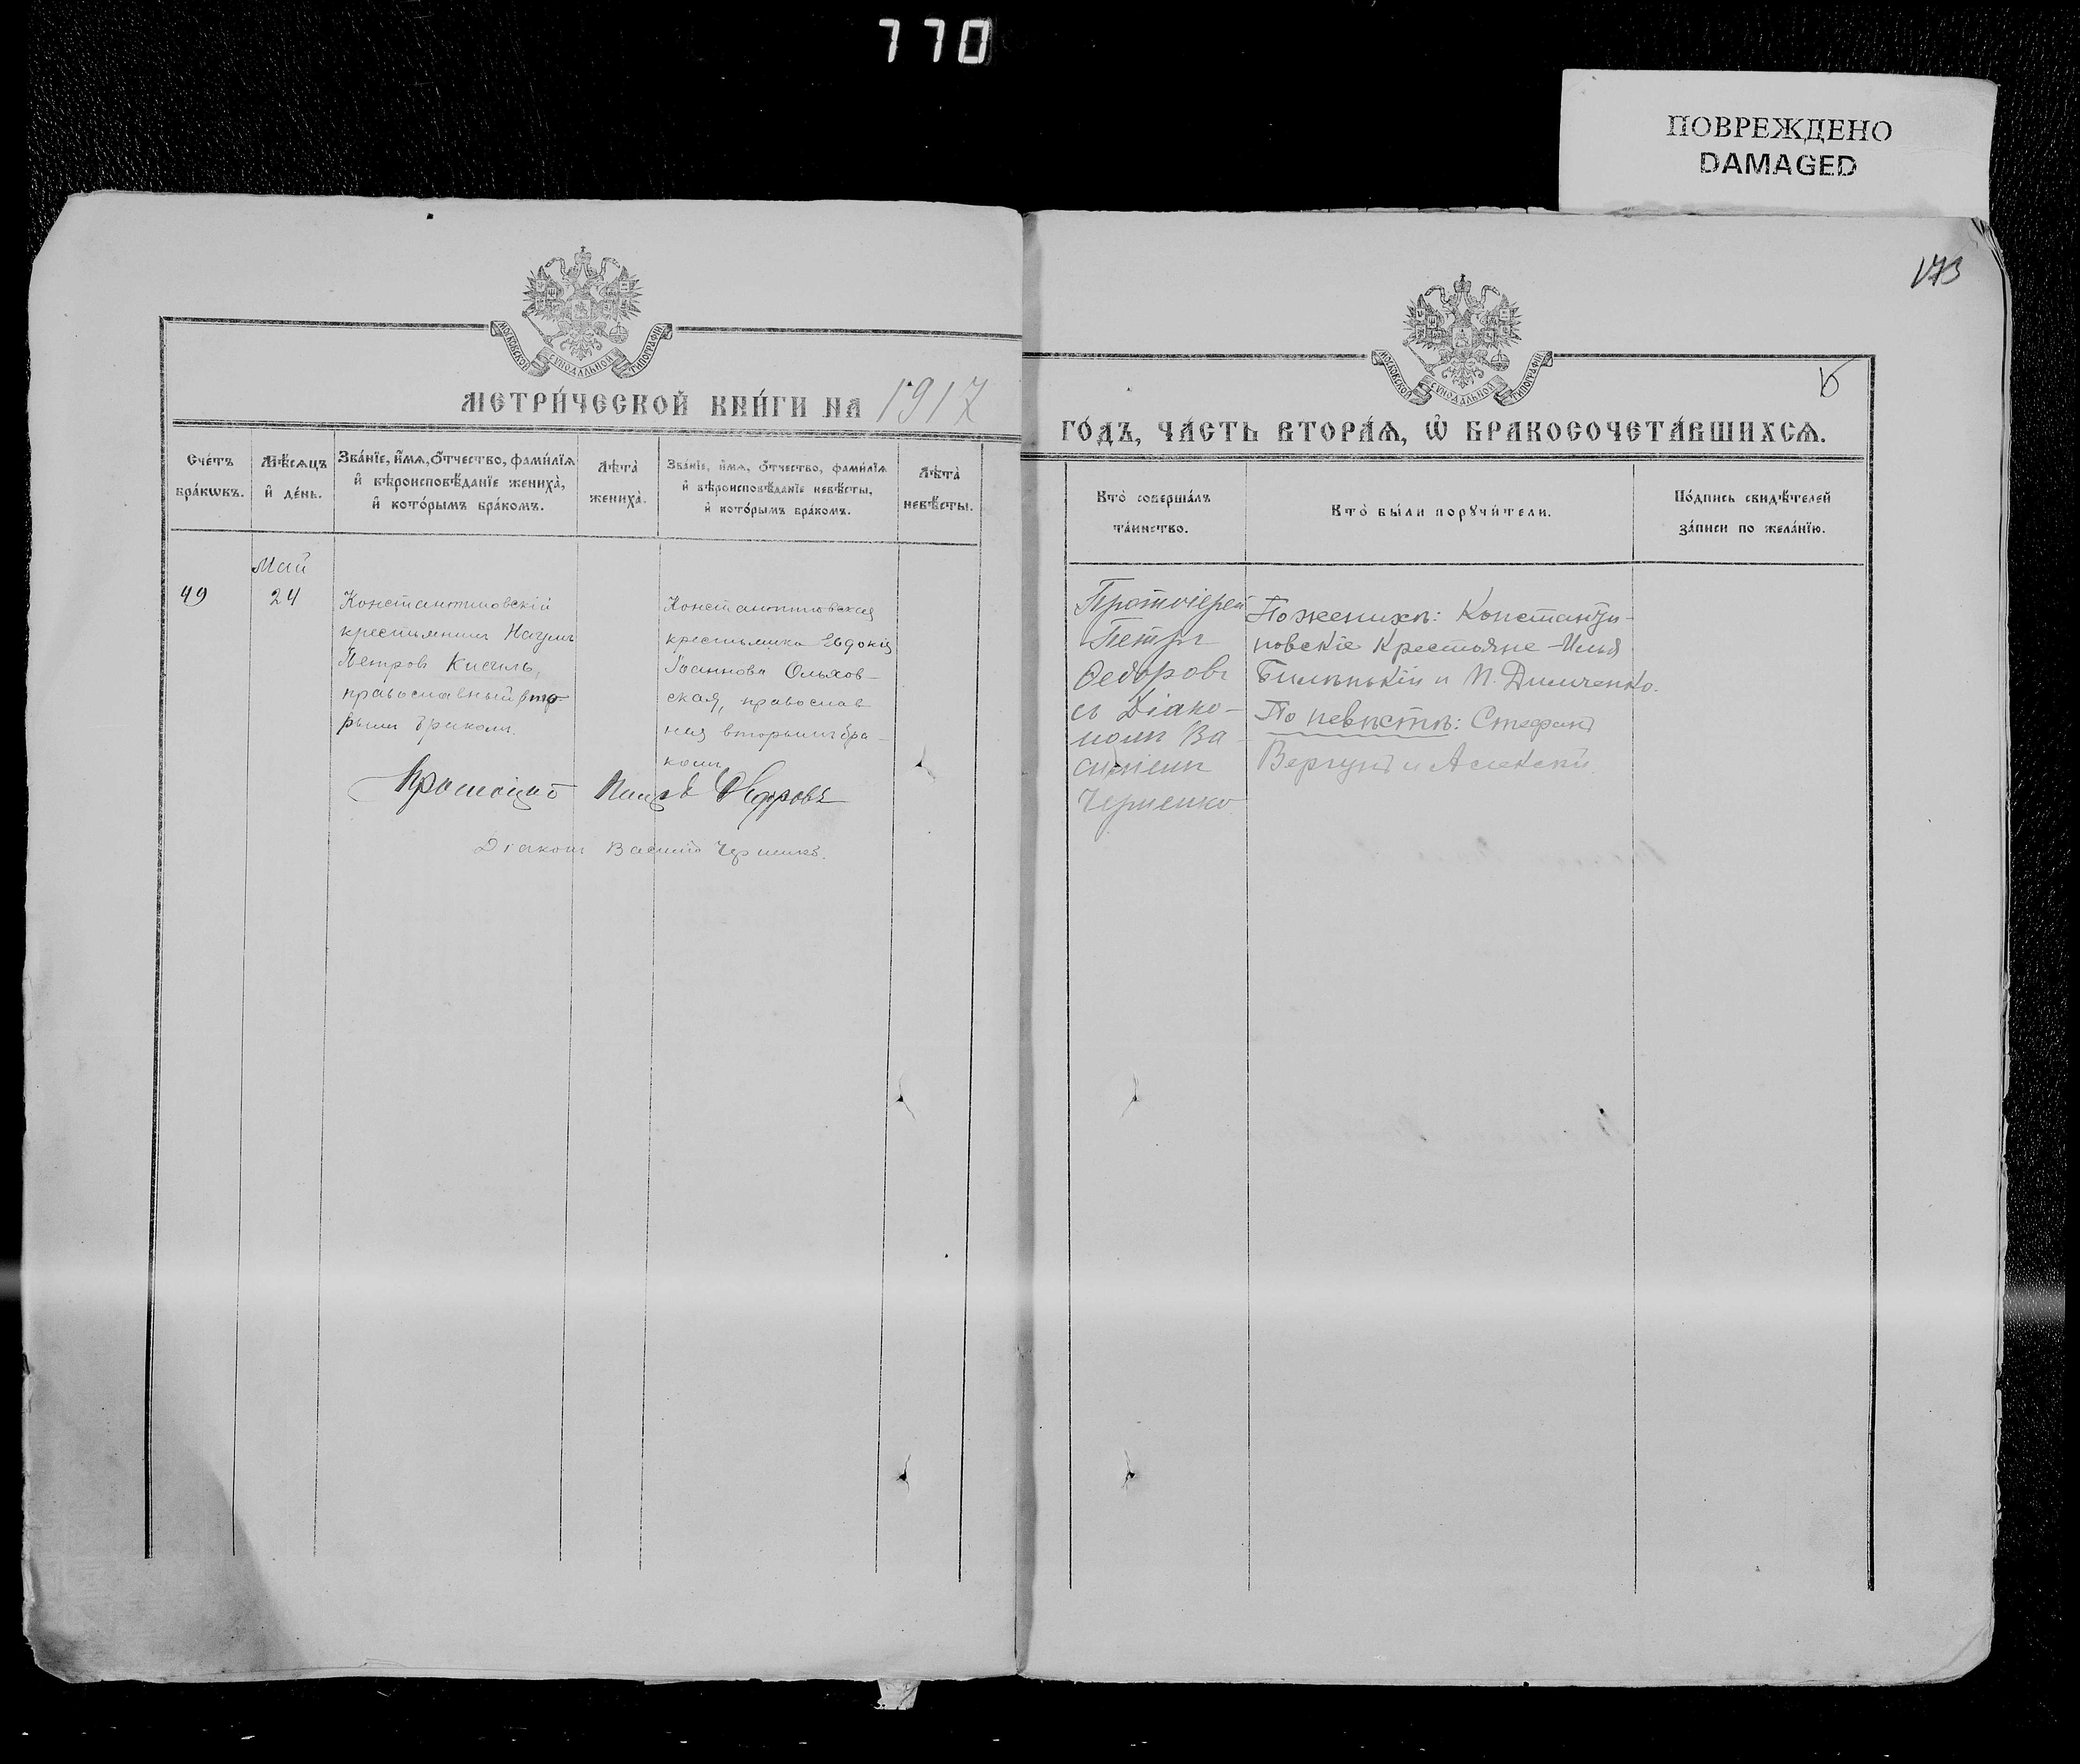 770
ПОВРЕЖДЕНО
DAMAGED
173
МОСКОВСКОЙ СѴНОДАЛЬНОЙ ТИПОГРАФІИ
МОСКОВСКОЙ СѴНОДАЛЬНОЙ ТИПОГРАФІИ
МЕТРИ́ЧЕСКОЙ КНИ́ГИ НА 1917
ГО́ДЪ, ЧА́СТЬ ВТОРА́Ѧ, Ѡ҆ БРАКОСОЧЕТА́ВШИХСѦ.
Сче́тъ
бра́кѡвъ.
Мѣ́сѧцъ
и҆ де́нь.
Зва́нїе, и҆́мѧ, ѻ҆́тчество, фами́лїѧ
и҆ вѣроисповѣ́данїе жениха̀,
и҆ кото́рымъ бра́комъ.
Лѣ́та̀
жениха̀.
Зва́нїе, и҆́мѧ, ѻ҆́тчество, фами́лїѧ
и҆ вѣроисповѣ́данїе невѣ́сты,
и҆ кото́рымъ бра́комъ.
Лѣ́та̀
невѣ́сты.
Кто̀ соверша́лъ
та́инство.
Кто̀ бы́ли порꙋчи́тели.
По́дпись свидѣ́телей
за́писи по жела́нїю.
Май
49
24
Константиновскій
крестьянинъ Наумъ
Петровъ Кисиль,
православный вто-
рымъ бракомъ.
Константиновская
крестьянка Евдокія
Іоаннова Ольхов-
ская, православ
ная вторымъ бра-
комъ
Протоіерей
Петръ
Ѳедоровъ
съ Діако-
номъ Ва-
силіемъ
Черненко
По женихѣ: Константи-
новскіе крестьяне Илья
Билинькій и П. Димченко.
По невѣстѣ: Стефанъ
Вергунъ и Алексѣй
Протоіерей Петръ Ѳедоровъ
Діаконъ Василій Черненко.